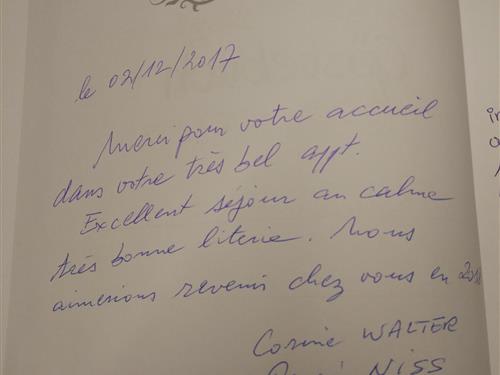 le 02/12/2017
Merci pour votre accueil
dans votre très bel appt.
Excellent séjour au calme
très bonne literie. Nous
aimerions revenir chez vous en
Corine WALTER
NISS